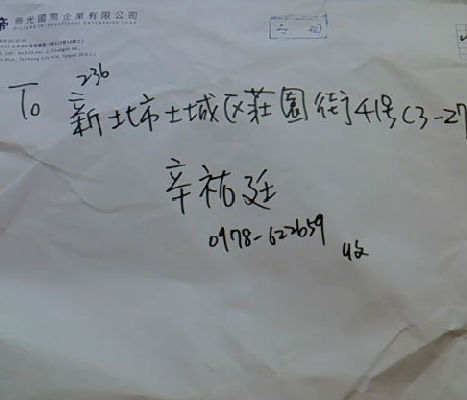 帝光國際企業有限公司
To
236
新北市土城区莊園街41号C3-27
辛祐廷
0978-622659
收